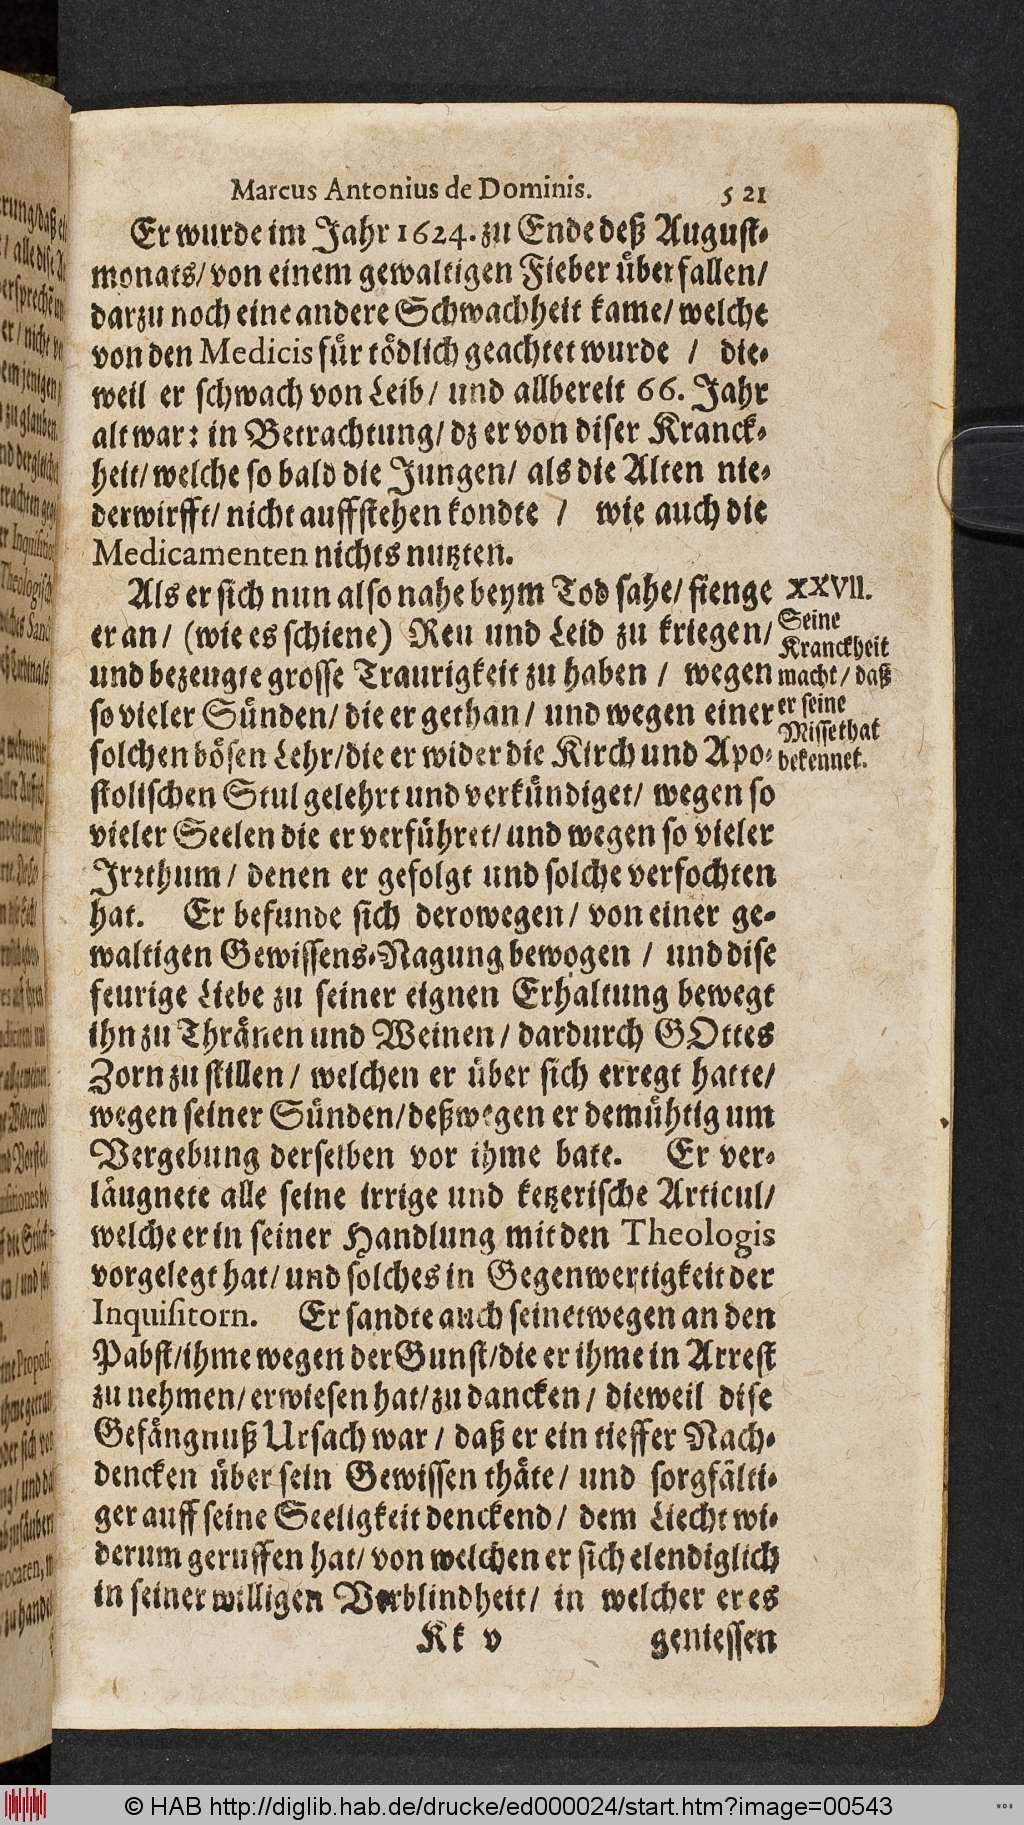 Marcus Antonius de Dominis. 521
Er wurde im Jahr 1624. zu Ende deß August-
monats/ von einem gewaltigen Fieber überfallen/
darzu noch eine andere Schwachheit kame/ welche
von den Medicis für tödlich geachtet wurde / die-
weil er schwach von Leib/ und allbereit 66. Jahr
alt war: in Betrachtung/ dz er von diser Kranck-
heit/ welche so bald die Jungen/ als die Alten nie-
derwirfft/ nicht auffstehen kondte / wie auch die
Medicamenten nichts nutzten.
Als er sich nun also nahe beym Tod sahe/ fienge
er an/ (wie es schiene) Reu und Leid zu kriegen/
und bezeugte grosse Traurigkeit zu haben / wegen
so vieler Sünden/ die er gethan/ und wegen einer
solchen bösen Lehr/ die er wider die Kirch und Apo-
stolischen Stul gelehrt und verkündiget/ wegen so
vieler Seelen die er verführet/ und wegen so vieler
Irrthum/ denen er gefolgt und solche verfochten
hat. Er befunde sich derowegen/ von einer ge-
waltigen Gewissens-Nagung bewogen / und dise
feurige Liebe zu seiner eignen Erhaltung bewegt
ihn zu Thränen und Weinen/ dardurch GOttes
Zorn zu stillen/ welchen er über sich erregt hatte/
wegen seiner Sünden/ deßwegen er demühtig um
Vergebung derselben vor ihme bate. Er ver-
läugnete alle seine irrige und ketzerische Articul/
welche er in seiner Handlung mit den Theologis
vorgelegt hat/ und solches in Gegenwertigkeit der
Inquisitorn. Er sandte auch seinetwegen an den
Pabst/ ihme wegen der Gunst/ die er ihme in Arrest
zu nehmen/ erwiesen hat/ zu dancken/ dieweil dise
Gefängnuß Ursach war / daß er ein tieffer Nach-
dencken über sein Gewissen thäte/ und sorgfälti-
ger auff seine Seeligkeit denckend/ dem Liecht wi-
derum geruffen hat/ von welchen er sich elendiglich
in seiner willigen Verblindheit/ in welcher er es
Kk v geniessen
XXVII.
Seine
Kranckheit
macht/ daß
er seine
Missethat
bekennet.
© HAB http://diglib.hab.de/drucke/ed000024/start.htm?image=00543